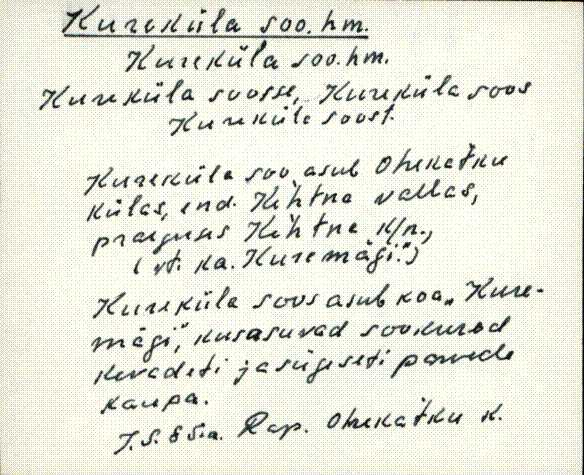 Kureküla soo. hm.
Kureküla soo. hm.
Kureküla soosse, Kureküla soos
Kureküla soost.
Kureküla soo asub Ohekatku
külas, end. Kehtna vallas,
praeguses Kehtna k/n.,
(vt. ka. Kuremägi.")
Kureküla soos asub koa „Kure-
mägi", kus asuvad sookured
kevadeti ja sügiseti parvede
kaupa.
Rap. Ohekatku k.